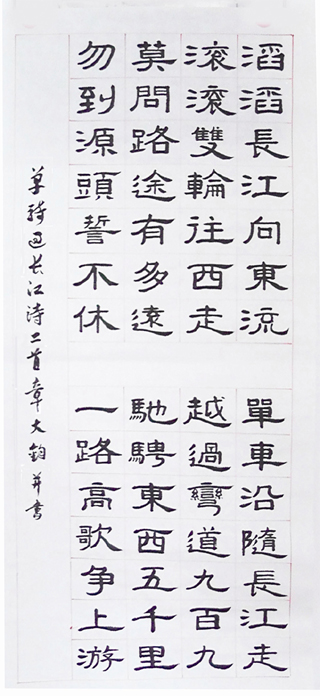 滔滔長江向東流
滾滾雙輪往西走
莫問路途有多遠
勿到源頭誓不休
單車沿隨長江走
越過彎道九百九
馳騁東西五千里
一路高歌争上游
单骑长江诗二首章大鈞并書